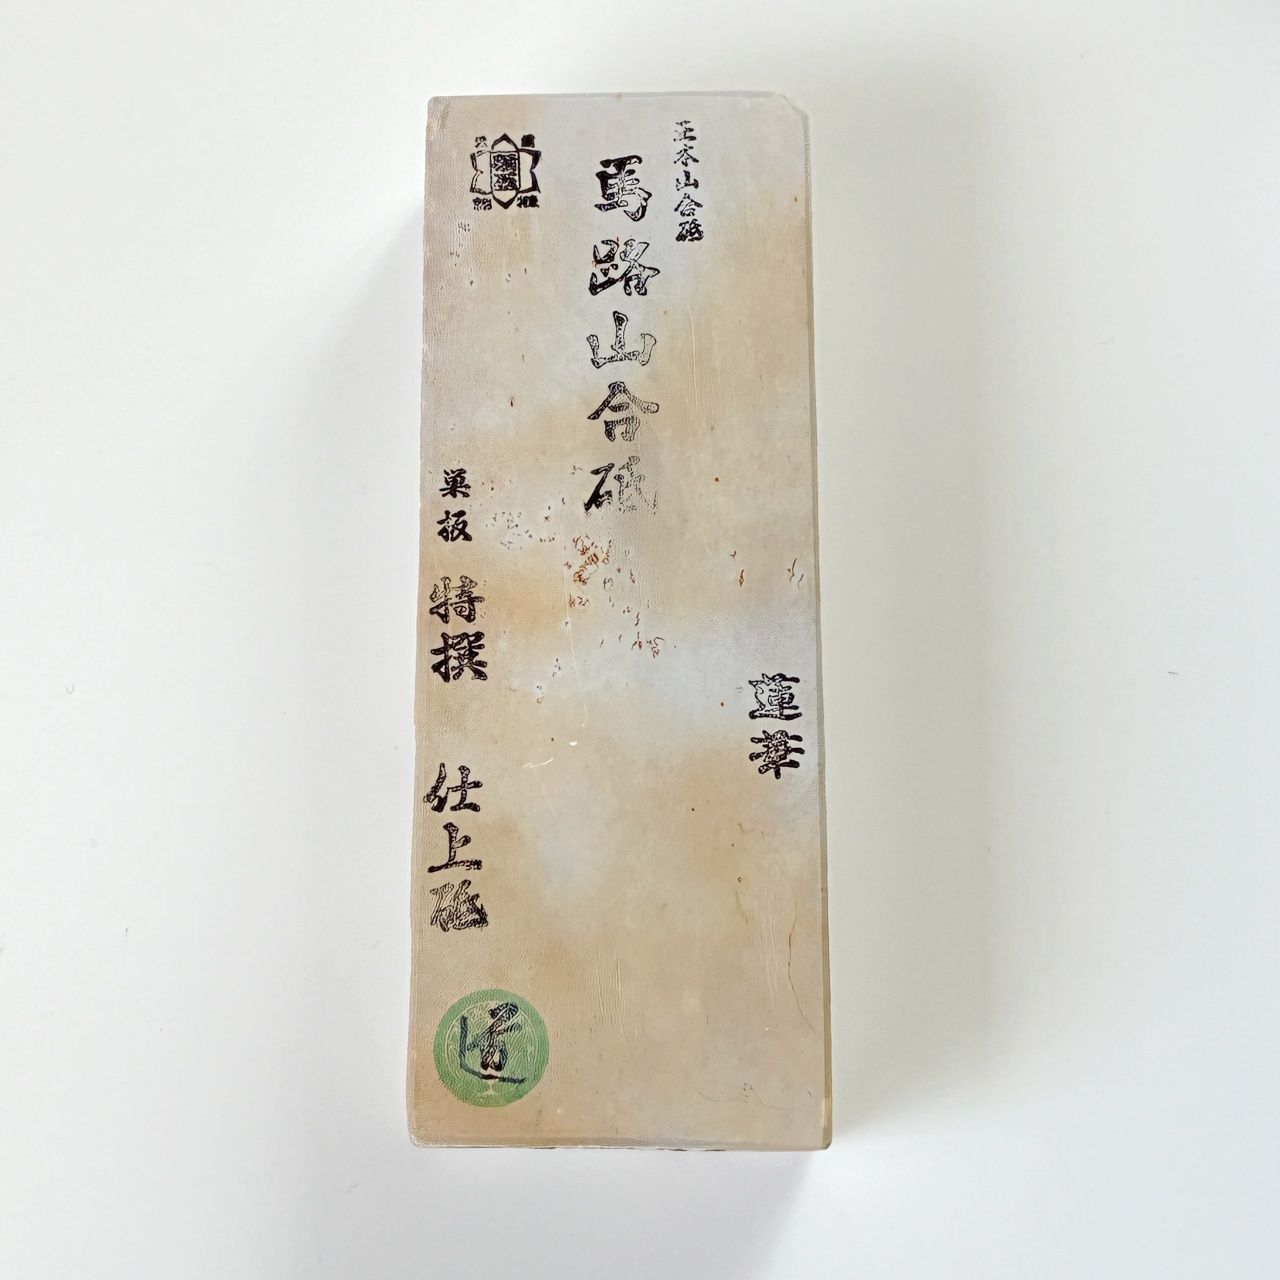 正本山合砥
馬路山合砥
蓮華
巣板
特撰
仕上砥